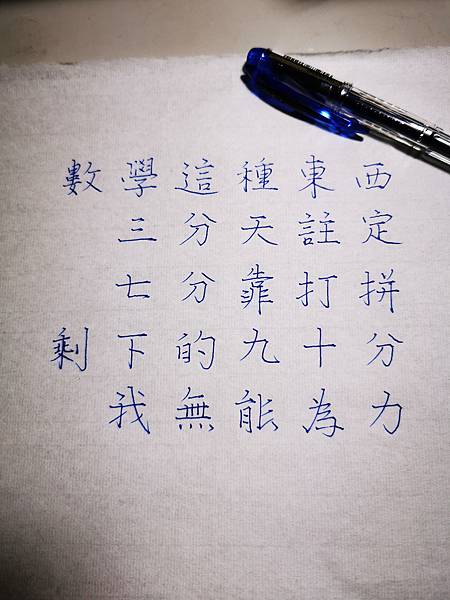 數學這種東西
三分天註定
七分靠打拼
剩下的九十分
我無能為力